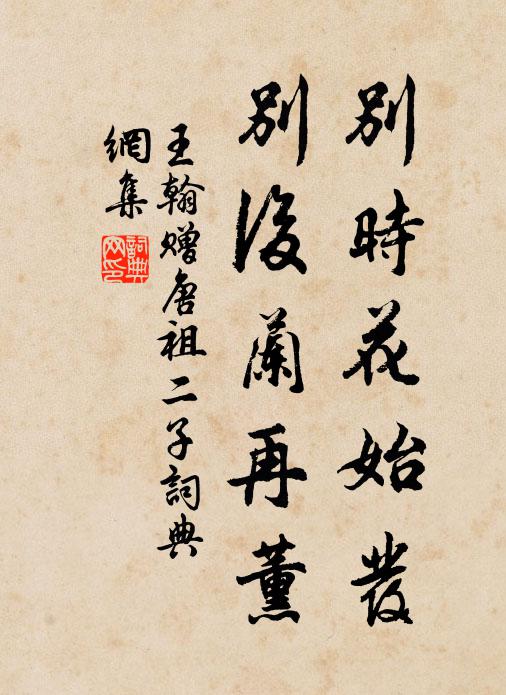 別時花始發
別後蘭再薰
王翰贈唐祖二子詞典
網集
詞典
网印